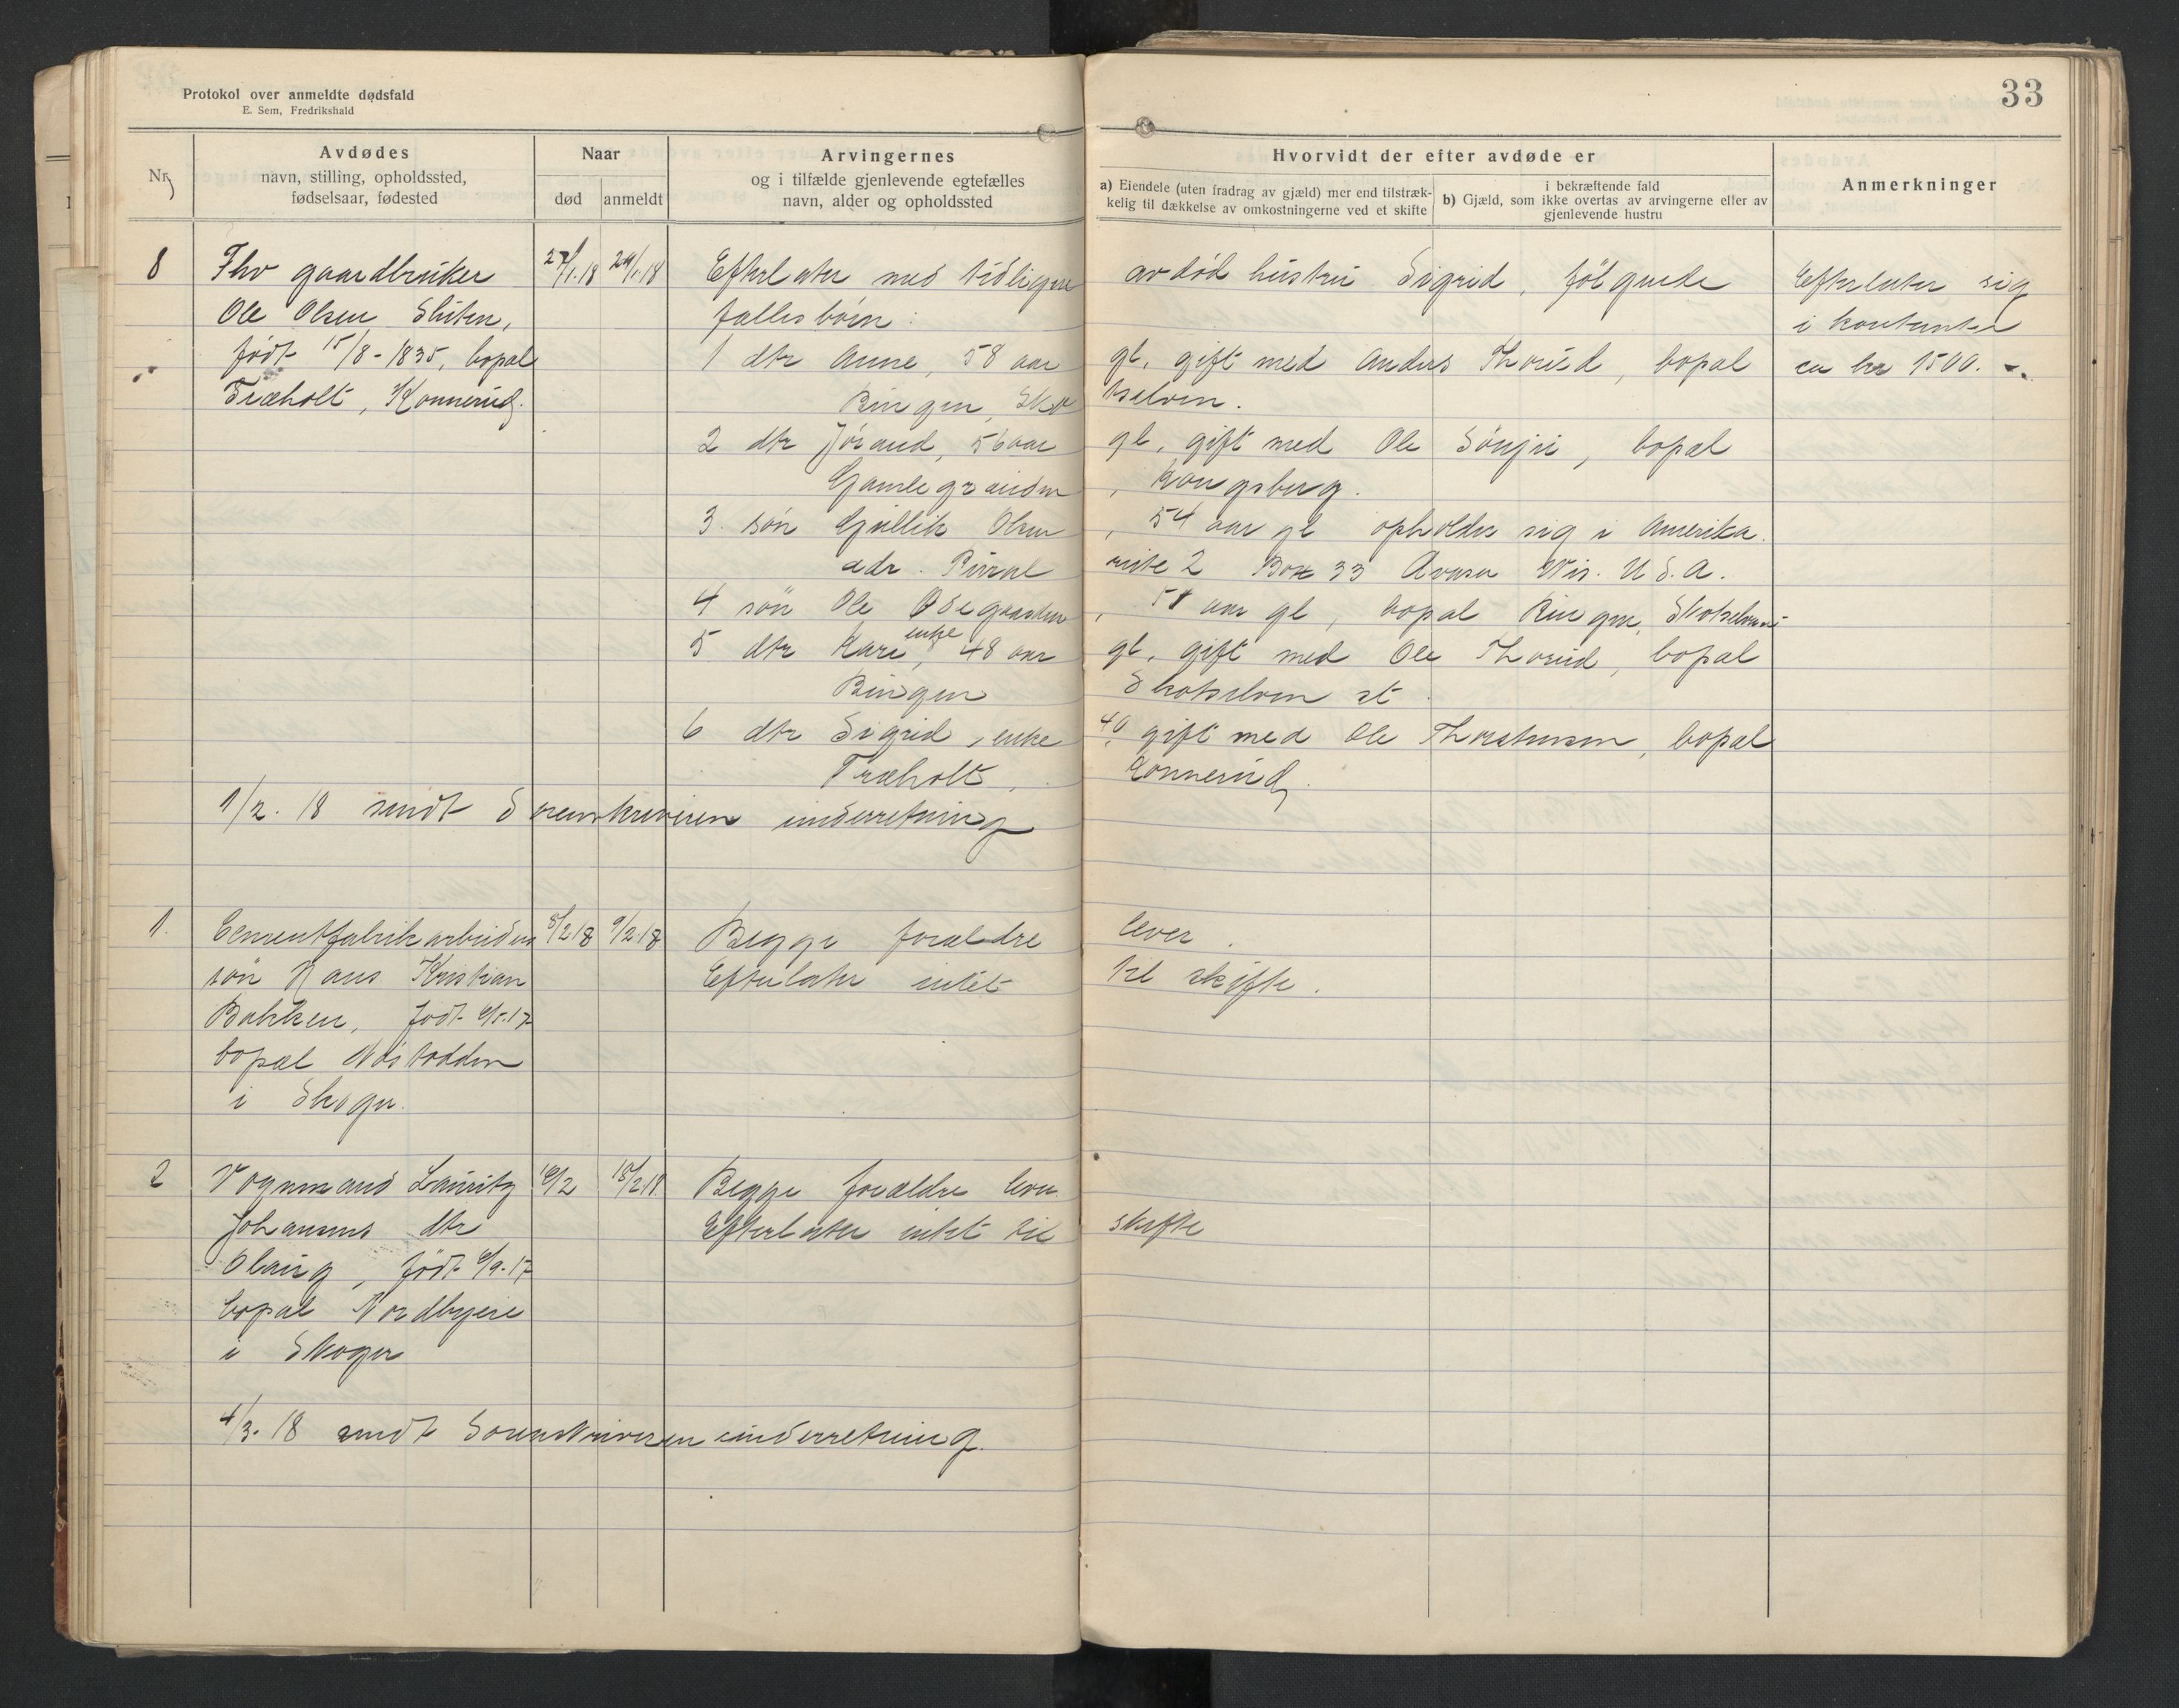 Protokol over anmeldte dødsfald
E. Sem, Fredrikshald
33
Nr.
Avdødes
navn, stilling, opholdssted,
fødselsaar, fødested
Naar
død
anmeldt
Arvingernes
og i tilfælde gjenlevende egtefælles
navn, alder og opholdssted
Hvorvidt der efter avdøde er
a) Eiendele (uten fradrag av gjæld) mer end tilstræk-
kelig til dækkelse av omkostningerne ved et skifte
i bekræftende fald
b) Gjæld, som ikke overtas av arvingerne eller av
gjenlevende hustru
Anmerkninger
8 Fhv gaardbruker 27/1.18 29/1.18 Efterlater med tidligere avdød hustru Sigrid, følgende Efterlater sig
Ole Olsen fællesbørn: i kontanter
født 15/8-1835, bopæl 1 dtr Anne, 58 aar gl, gift med Anders Thorud, bopæl ca kr 1500.-
Træholt, Konnerud. Bingen, Sko tselven.
2 dtr Jørand, 56 aar gl, gift med Ole bopæl
Kongsberg.
3. søn Gullik Olsen, 54 aar gl opholder sig i Amerika.
adr. Rural route 2 Box 33 Wis. U.S.A.
4 søn Ole Ødegaarden, 51 aar gl, bopæl Bingen, Skotselven
5 dtr Kari, enke, 48 aar gl, gift med Ole Thorud, bopæl
Bingen Skotselven st.
6 dtr Sigrid, enke 40, gift med Ole Thorstensen, bopæl
Træholt, Konnerud.
1/2.18 sendt Sorenskriveren underretning
1. Cementfabrikarbeiders 8/2 18 9/2.18 Begge forældre lever.
søn Hans Kristian Efterlater intet til skifte.
Bakken, født 6/5.17
bopæl Nøstodden
i Skoger.
2 Vognmand Lauritz 16/2 18/2.18 Begge forældre lever
Johansens dtr Efterlater intet til skifte
Olaug, født 6/9-17
bopæl Nordbyeie
i Skoger
4/3.18 sendt Sorenskriveren underretning.